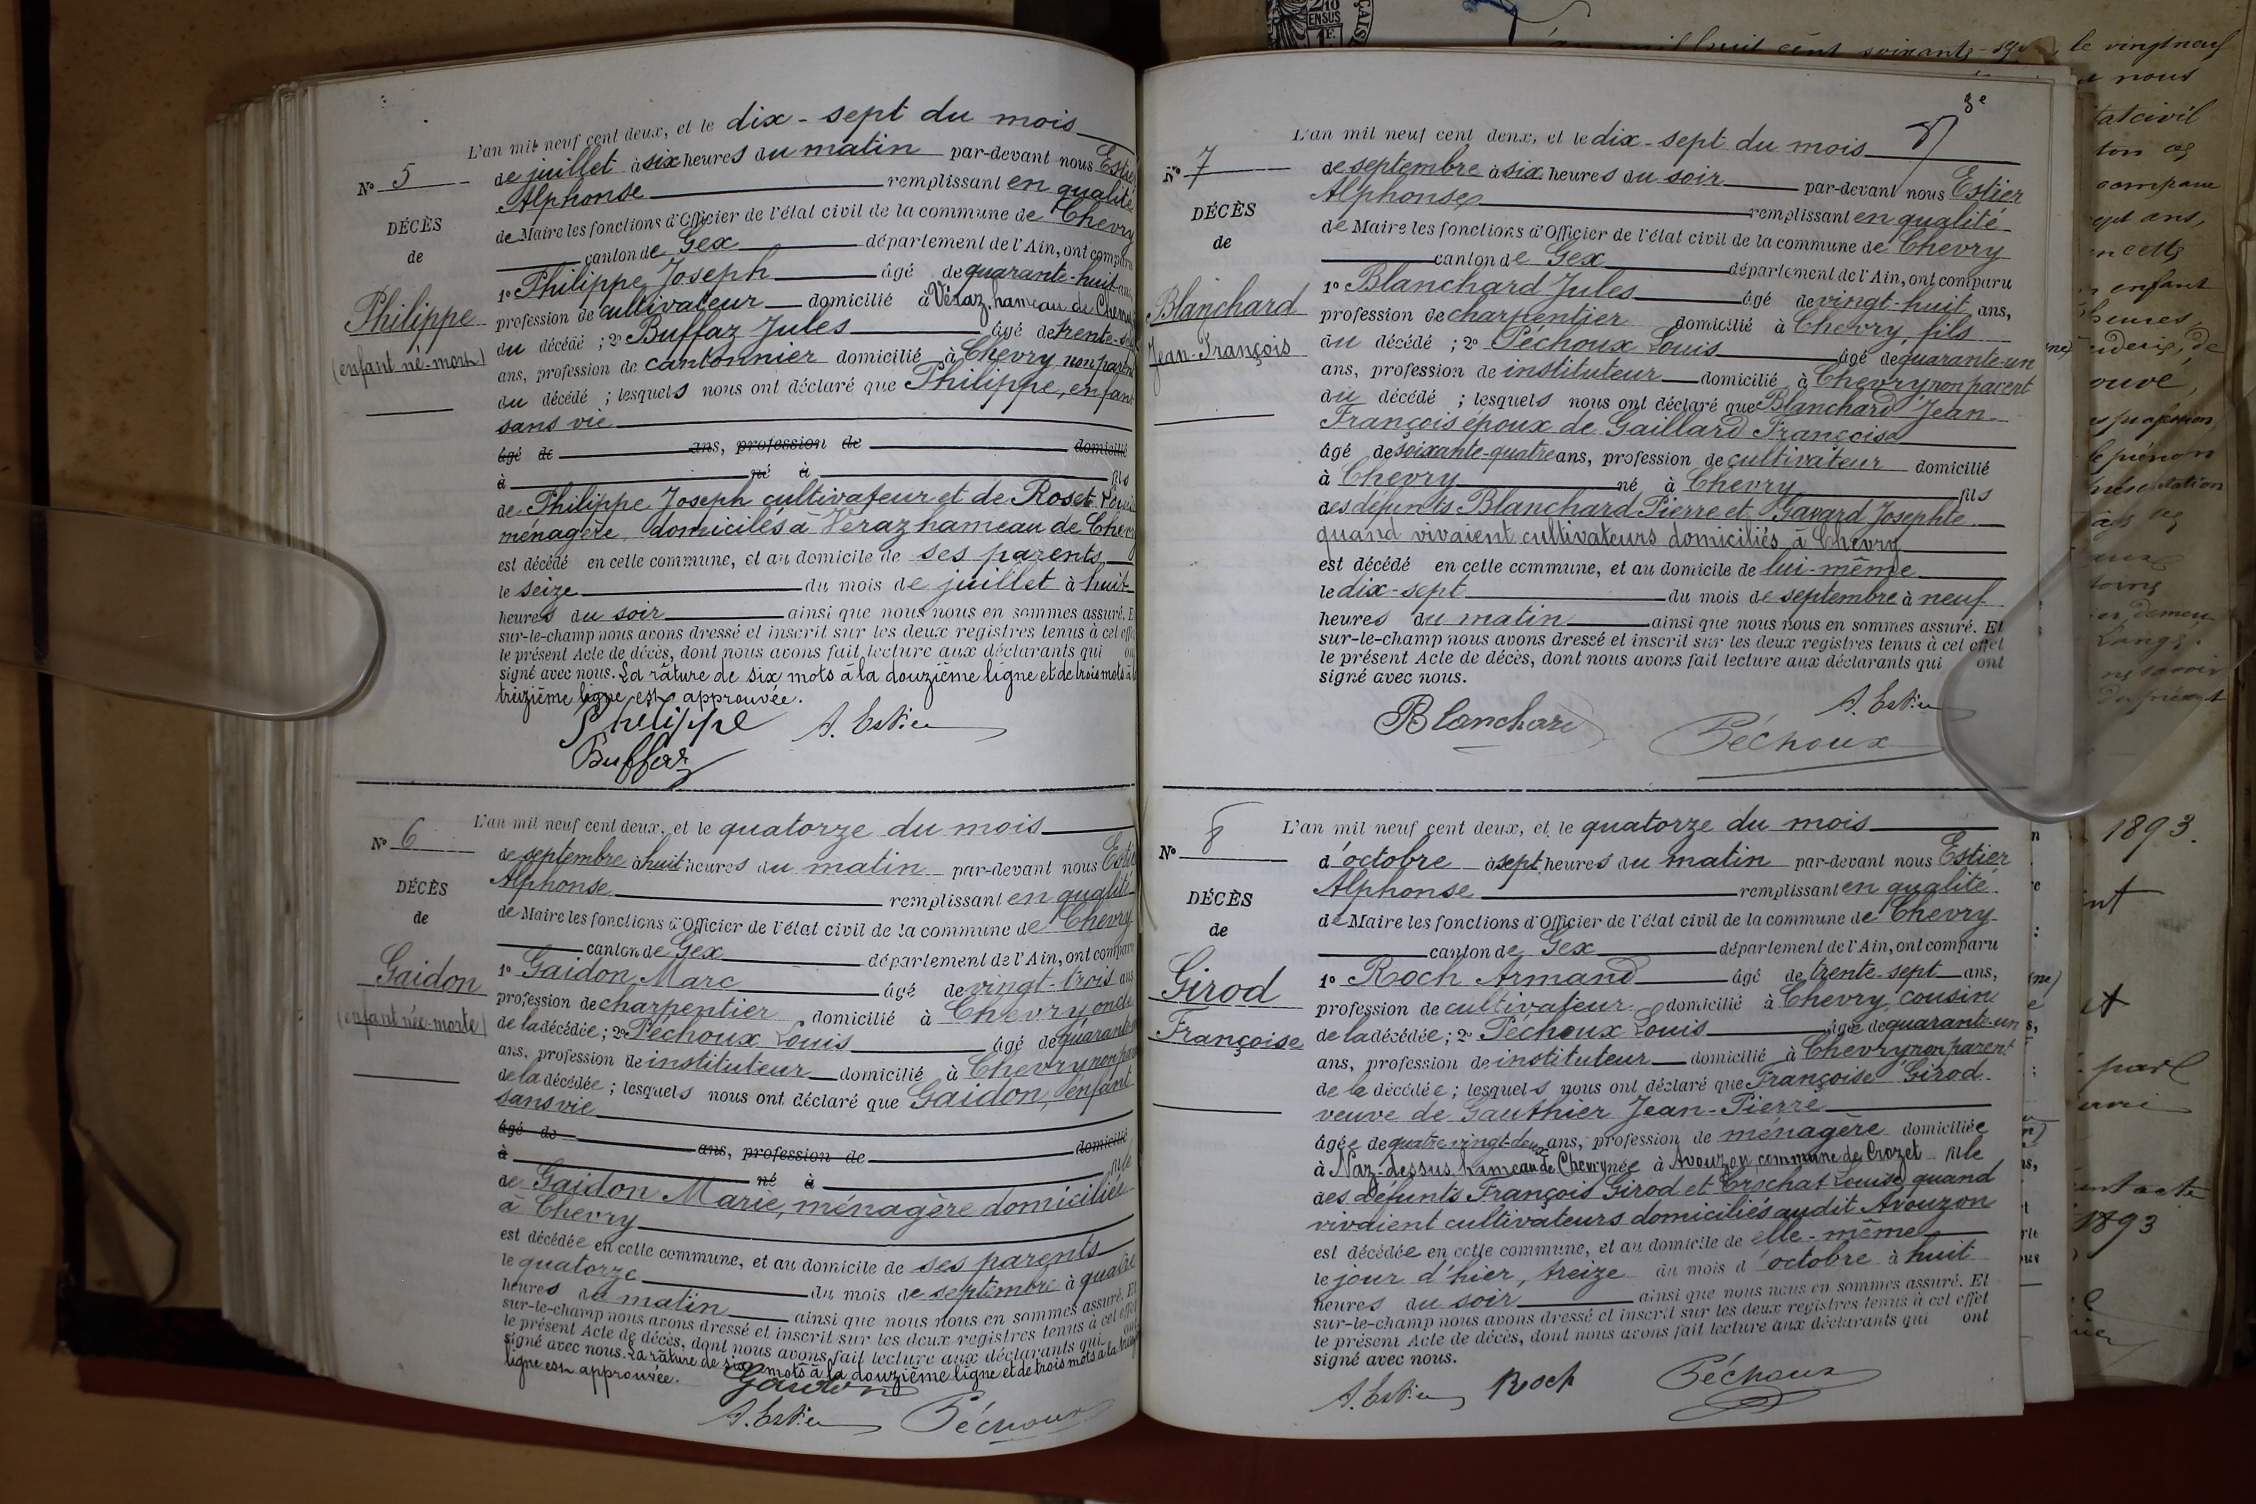 L'an mil neuf cent deux, et le dix-sept du mois
de juillet à six heures du matin par-devant nous Estier
N° 5
Alphonse remplissant en qualité
DÉCÈS
de Maire les fonctions d'Officier de l'état civil de la commune de Chevry
de
canton de Gex département de l'Ain, ont comparu
1° Philippe Joseph âgé de quarante-huit ans
Philippe
profession de cultivateur domicilié à Véraz, hameau de Chevry
(enfant né-mort)
du décédé ; 2° Buffaz Jules âgé de trente-
ans, profession de cantonnier domicilié à Chevry non parent
du décédé ; lesquels nous ont déclaré que Philippe, enfant
sans vie
âgé de ans, profession de domicilié
à né à fils
de Philippe Joseph cultivateur et de Roset
ménagère domiciliés à Véraz hameau de Chevry
est décédé en cette commune, et au domicile de ses parents
le seize du mois de juillet à huit
heures du soir ainsi que nous nous en sommes assuré. Et
sur-le-champ nous avons dressé et inscrit sur les deux registres tenus à cet effet
le présent Acte de décès, dont nous avons fait lecture aux déclarants qui ont
signé avec nous. La râture de six mots à la douzième ligne et de trois mots à la
treizième ligne est approuvée.
Philippe A. Estier
Buffaz
L'an mil neuf cent deux, et le quatorze du mois
N° 6
de septembre à huit heures du matin par-devant nous Estier
Alphonse remplissant en qualité
DÉCÈS
de Maire les fonctions d'Officier de l'état civil de la commune de Chevry
de
canton de Gex département de l'Ain, ont comparu
Gaidon
1° Gaidon Marc âgé de vingt-trois ans
(enfant née-morte)
profession de charpentier domicilié à Chevry oncle
de la décédée ; 2° Péchoux Louis âgé de quarante-
ans, profession de instituteur domicilié à Chevry non parent
de la décédée ; lesquels nous ont déclaré que Gaidon, enfant
sans vie
âgé de ans, profession de domicilié
à né à fille
de Gaidon Marie, ménagère domiciliée
à Chevry
est décédée en cette commune, et au domicile de ses parents
le quatorze du mois de septembre à quatre
heures du matin ainsi que nous nous en sommes assuré. Et
sur-le-champ nous avons dressé et inscrit sur les deux registres tenus à cet effet
le présent Acte de décès, dont nous avons fait lecture aux déclarants qui ont
signé avec nous. La râture de six mots à la douzième ligne et de trois mots à la treizième
ligne est approuvée.
Gaidon
A. Estier Péchoux
8e
L'an mil neuf cent deux, et le dix-sept du mois
N° 7
de septembre à six heures du soir par-devant nous Estier
Alphonse remplissant en qualité
DÉCÈS
de Maire les fonctions d'Officier de l'état civil de la commune de Chevry
de
canton de Gex département de l'Ain, ont comparu
Blanchard
1° Blanchard Jules âgé de vingt-huit ans,
profession de charpentier domicilié à Chevry, fils
Jean-François
du décédé ; 2° Péchoux Louis âgé de quarante-un
ans, profession de instituteur domicilié à Chevry non parent
du décédé ; lesquels nous ont déclaré que Blanchard Jean
François époux de Gaillard Françoise
âgé de soixante-quatre ans, profession de cultivateur domicilié
à Chevry né à Chevry fils
des défunts Blanchard Pierre et Gavard Josephte
quand vivaient cultivateurs domiciliés à Chevry
est décédé en cette commune, et au domicile de lui-même
le dix-sept du mois de septembre à neuf
heures du matin ainsi que nous nous en sommes assuré. Et
sur-le-champ nous avons dressé et inscrit sur les deux registres tenus à cet effet
le présent Acte de décès, dont nous avons fait lecture aux déclarants qui ont
signé avec nous.
A. Estier
Blanchard Péchoux
L'an mil neuf cent deux, et le quatorze du mois
N° 8
d'octobre à sept heures du matin par-devant nous Estier
Alphonse remplissant en qualité
DÉCÈS
de Maire les fonctions d'Officier de l'état civil de la commune de Chevry
de
canton de Gex département de l'Ain, ont comparu
Girod
1° Roch Armand âgé de trente-sept ans,
profession de cultivateur domicilié à Chevry, cousin
Françoise
de la décédée ; 2° Péchoux Louis âgé de quarante-un
ans, profession de instituteur domicilié à Chevry non parent
de la décédée ; lesquels nous ont déclaré que Françoise Girod
veuve de Gauthier Jean-Pierre
âgée de quatre-vingt-deux ans, profession de ménagère domiciliée
à Naz-dessus, hameau de Chevry née à Avouzon, commune de Crozet fille
des défunts François Girod et Crochat Louise quand
vivaient cultivateurs domiciliés audit Avouzon
est décédée en cette commune, et au domicile de elle-même
le jour d'hier, treize du mois d'octobre à huit
heures du soir ainsi que nous nous en sommes assuré. Et
sur-le-champ nous avons dressé et inscrit sur les deux registres tenus à cet effet
le présent Acte de décès, dont nous avons fait lecture aux déclarants qui ont
signé avec nous.
A. Estier Roch Péchoux
le vingt neuf
nous
1893.
1893